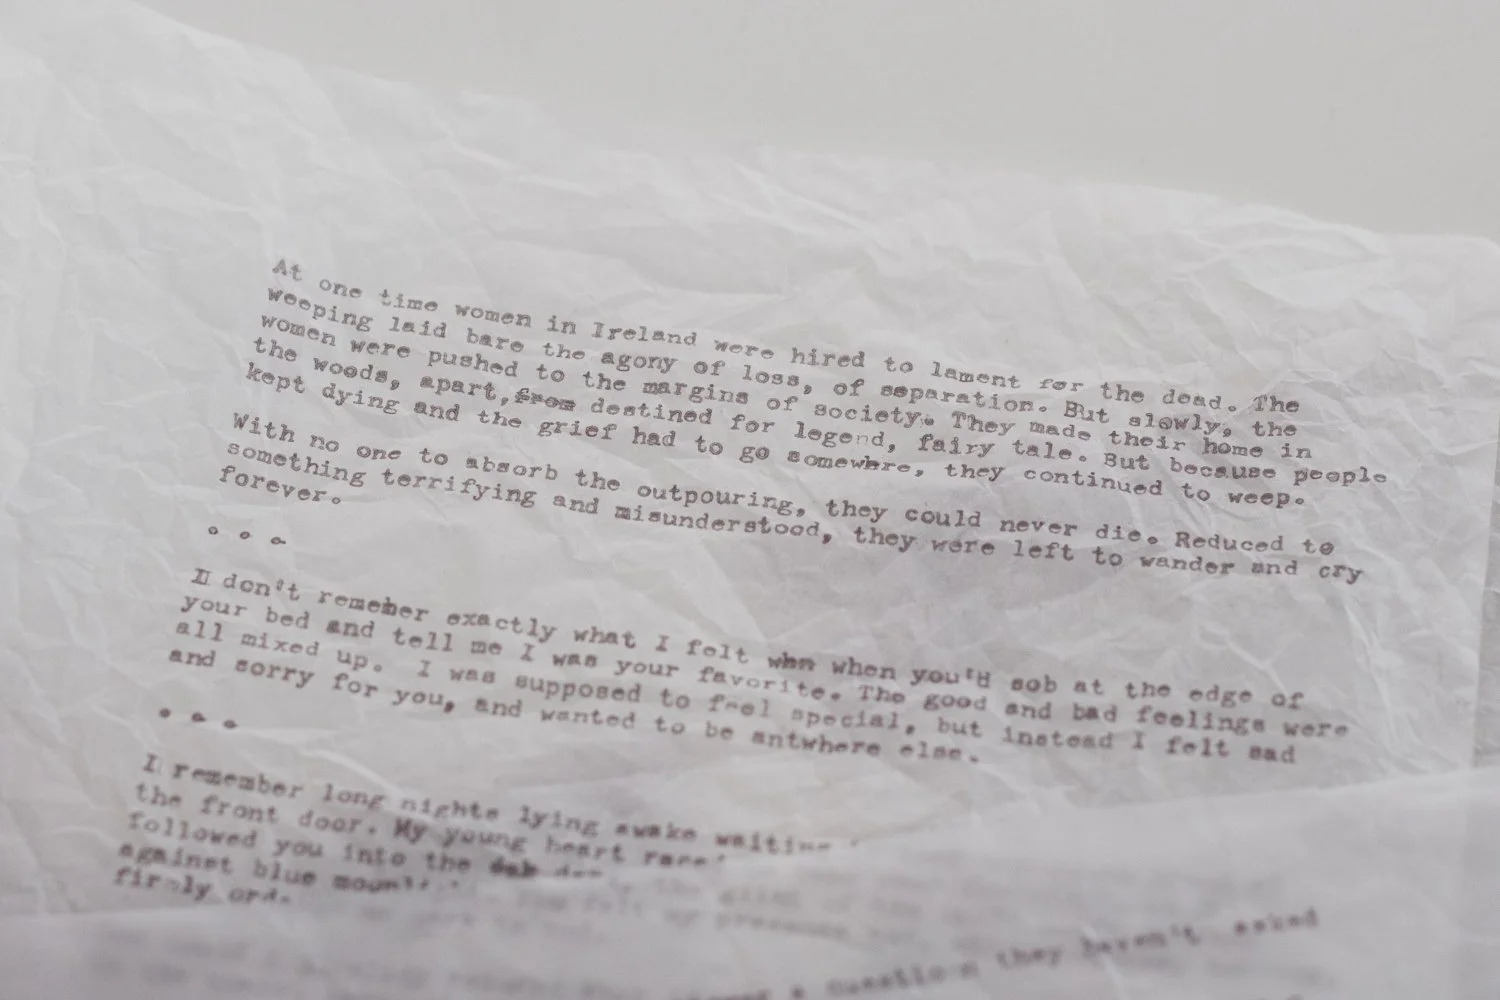 At one time women in Ireland were hired to lament for the dead. The
weeping laid bare the agony of loss, of separation. But slowly, the
women were pushed to the margins of society. They made their home in
the woods, apart, from destined for legend, fairy tale. But because people
kept dying and the grief had to go somewhre, they continued to weep.
With no one to absorb the outpouring, they could never die. Reduced to
something terrifying and misunderstood, they were left to wander and cry
forever.
. . .
I don't remember exactly what I felt whn when you'd sob at the edge of
your bed and tell me I was your favorite. The good and bad feelings were
all mixed up. I was supposed to feel special, but instead I felt sad
and sorry for you, and wanted to be antwhere else.
. . .
I remember long nights lying awake waiting
the front door. My young heart
followed you into the
against blue
firmly
a question they haven't asked